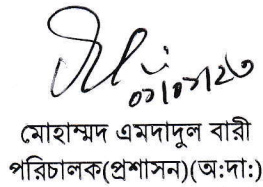 মোহাম্মদ এমদাদুল বারী
পরিচালক(প্রশাসন)(অ:দা:)